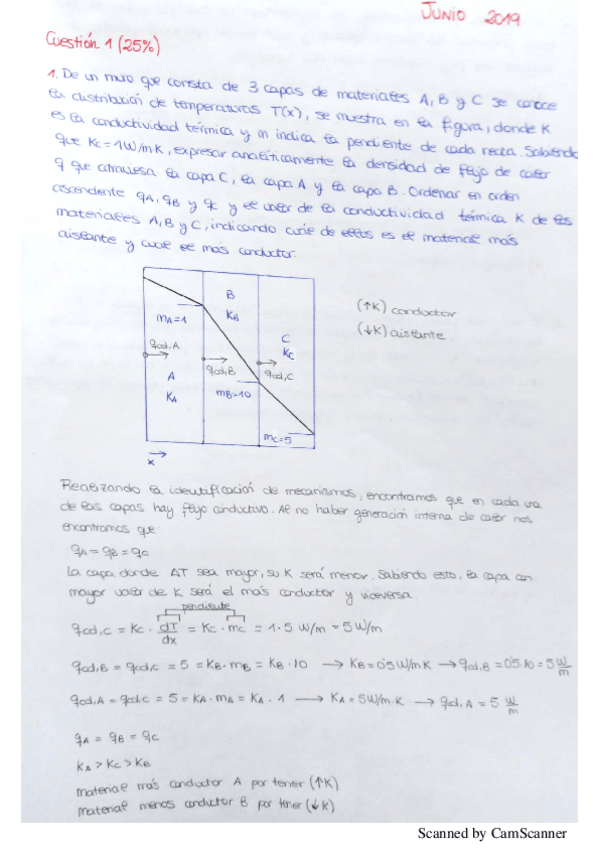 JUNIO 2019
Cuestión 1 (25%)
1. De un muro que consta de 3 capas de materiales A, B y C se conoce
la distribución de temperaturas T(x), se muestra en la figura, donde K
es la conductividad térmica y m indica la pendiente de cada recta. Sabiendo
que Kc=1W/mK, expresar analíticamente la densidad de flujo de calor
q que atraviesa la capa C, la capa A y la capa B. Ordenar en orden
ascendente qA, qB y qc y el valor de la conductividad térmica K de los
materiales A, B y C, indicando cuál de ellos es el material más
aislante y cual el más conductor.
B
KB
mA=1
(↑K) conductor
(↓K) aislante
C
KC
qcd,A
qcd,B
qcd,C
A
KA
mB=10
mc=5
x
Realizando la identificación de mecanismos, encontramos que en cada una
de las capas hay flujo conductivo. Al no haber generación interna de calor nos
encontramos que:
qA = qB = qC
La capa donde ΔT sea mayor, su K será menor. Sabiendo esto, la capa con
mayor valor de K será el más conductor y viceversa.
pendiente
qcd,c = Kc · dT/dx = Kc · mc = 1·5 W/m = 5W/m
qcd,B = qcd,c = 5 = KB·mB = KB·10 → KB=0'5W/mK → qcd,B = 0'5·10 = 5 W/m
qcd,A = qcd,c = 5 = KA·mA = KA · 1 → KA = 5W/m·K → qcd,A = 5 W/m
qA = qB = qC
KA > KC > KB
material más conductor A por tener (↑K)
material menos conductor B por tener (↓K)
Scanned by CamScanner